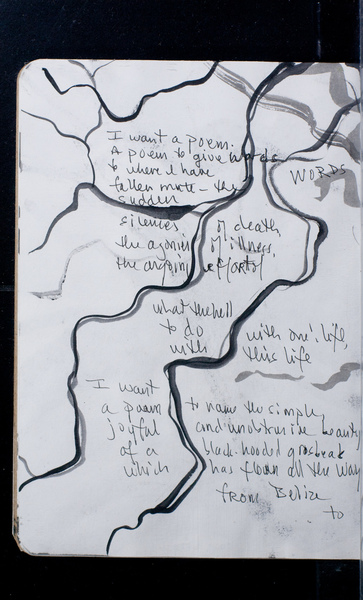 I want a poem.
A poem to give words
to where I have
fallen mute – the
sudden
WORDS
silences of death
the agonies of illness,
the ongoing effort of
what the hell
to do
with with one's life,
this life
I want
a poem to name the simple,
joyful and unobtrusive beauty
of a black-hooded grosbeak
which has flown all the way
from Belize
to